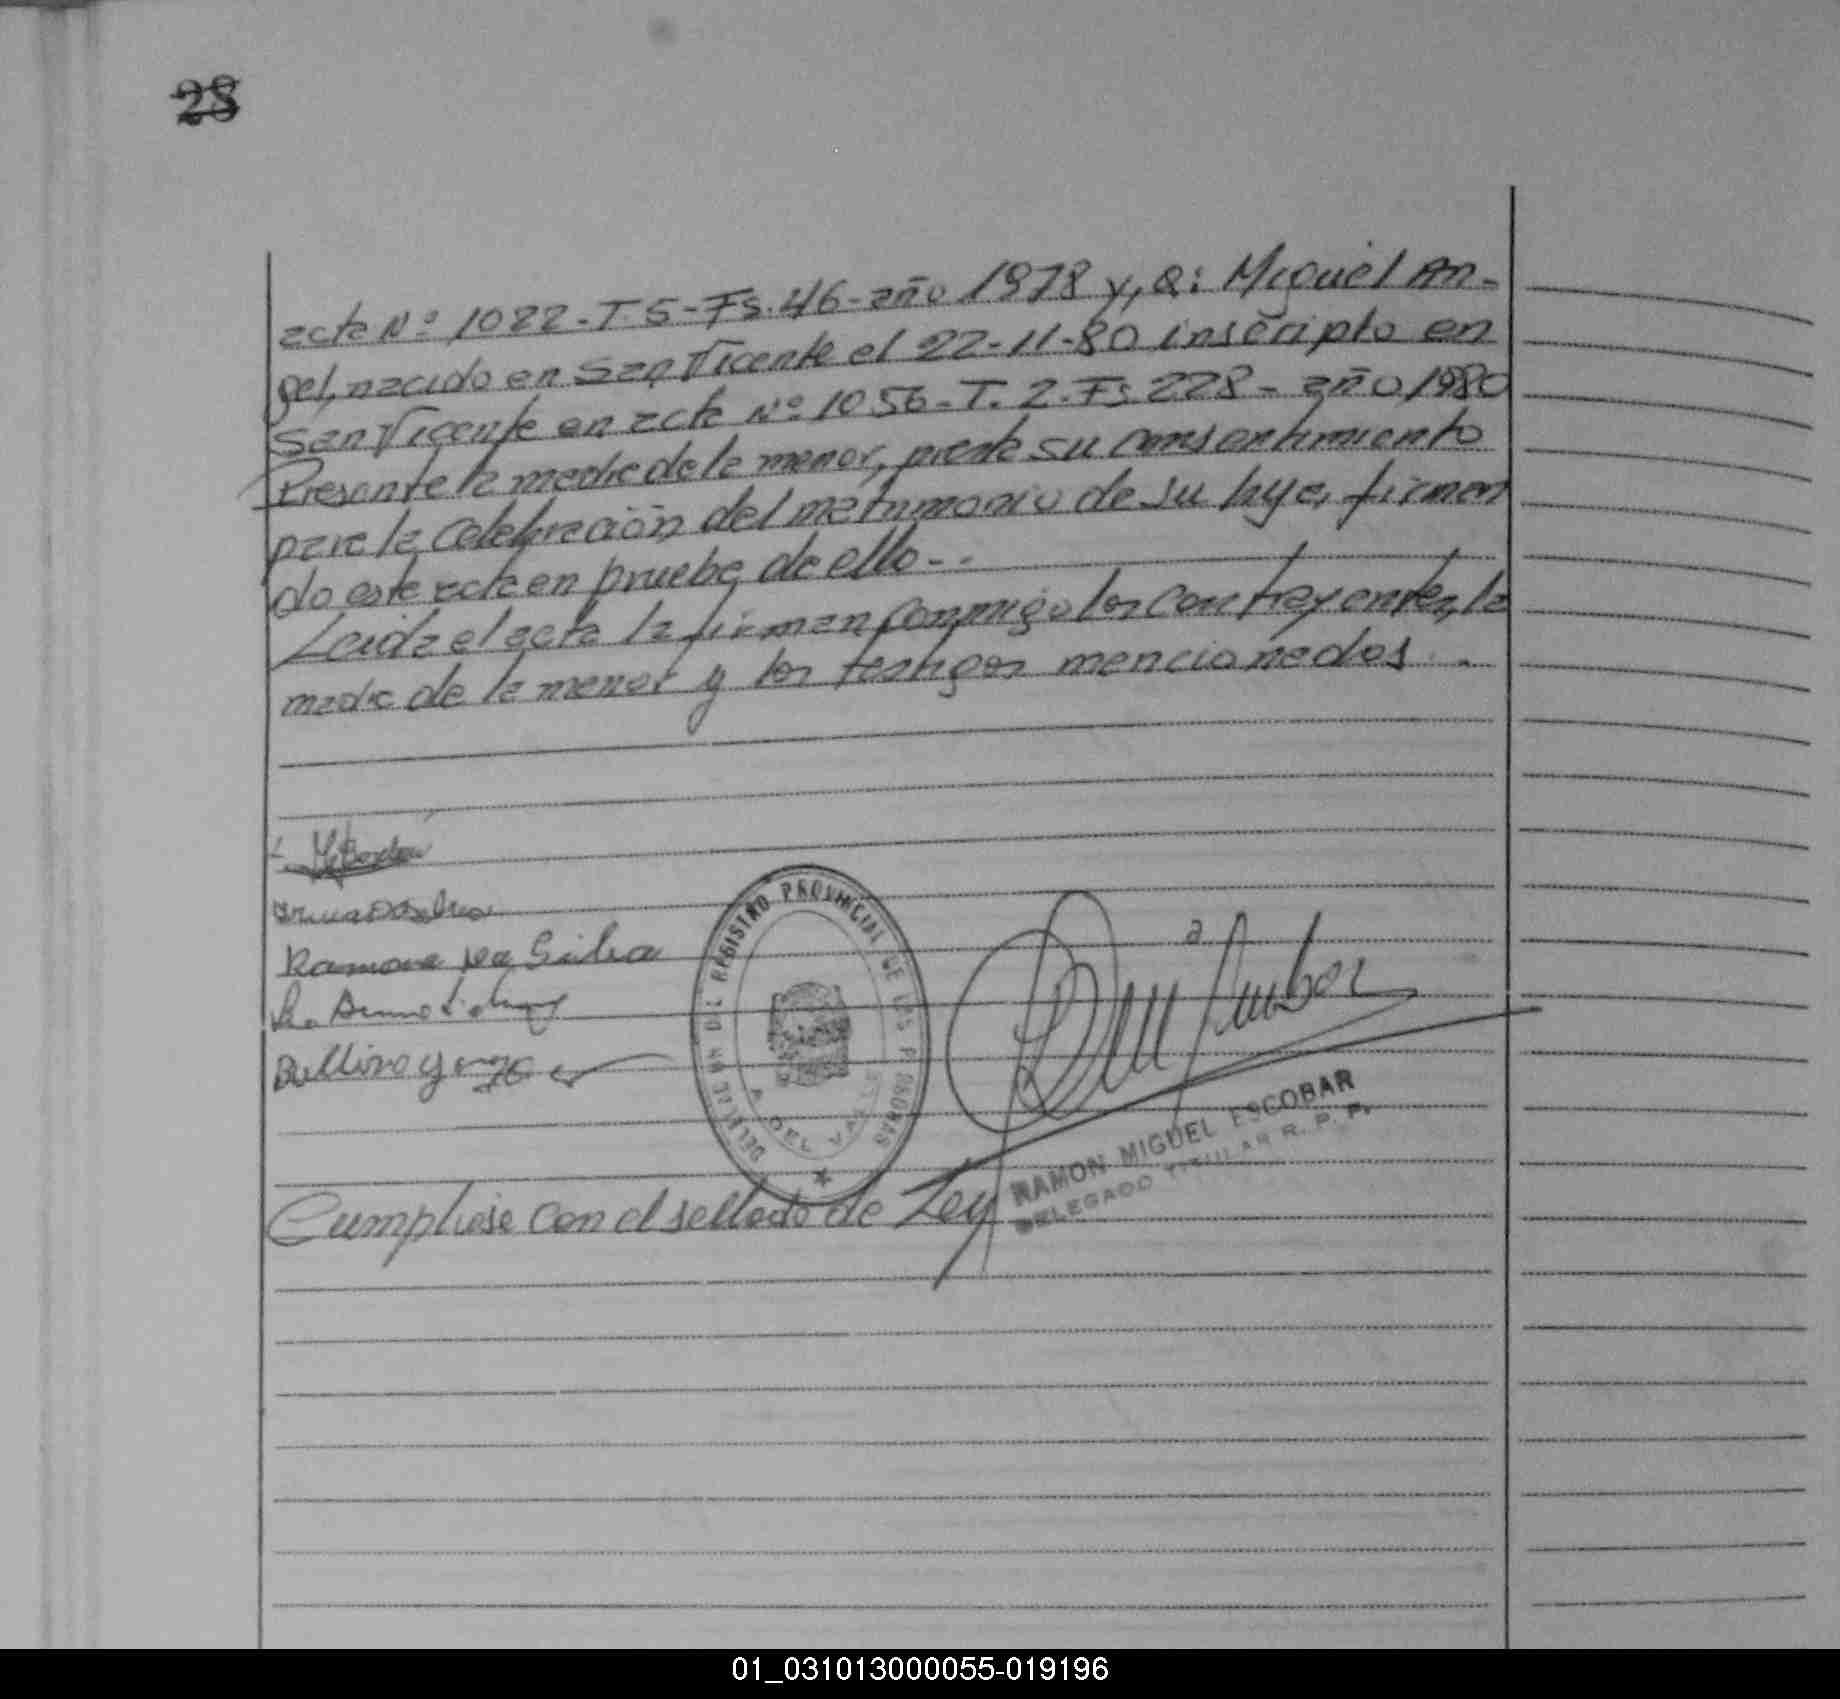 28
acta Nº 1022-T.5-Fs.46-año 1978 y, a: Miguel An-
gel, nacido en San Vicente el 22-11-80 inscripto en
San Vicente en acta Nº 1056-T.2-Fs 228-año 1980
Presente la madre de la menor, presta su consentimiento
para la celebración del matrimonio de su hija, firman
do esta acta en prueba de ello-..
Leida el acta la firman conmigo los contrayentes, la
madre de la menor y los testigos mencionados..
Ramona Da Silva
DELEGACION DEL REGISTRO PROVINCIAL DE LAS PERSONAS
RAMON MIGUEL ESCOBAR
DELEGADO TITULAR R. P. P.
Cumpliose con el sellado de Ley
01_031013000055-019196